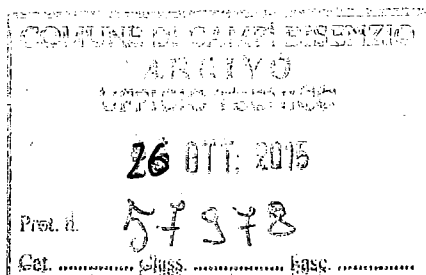 COMUNE DI CAMPI BISENZIO
ARRIVO
26 OTT. 2015
Prot. n. 57978
Cat. ............ Class. ............ Fasc. ............